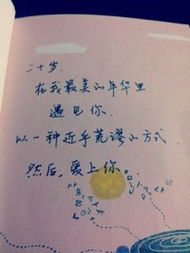 二十岁.
在我最美的年华里
遇见你.
以一种近乎荒谬的方式
然后,爱上你